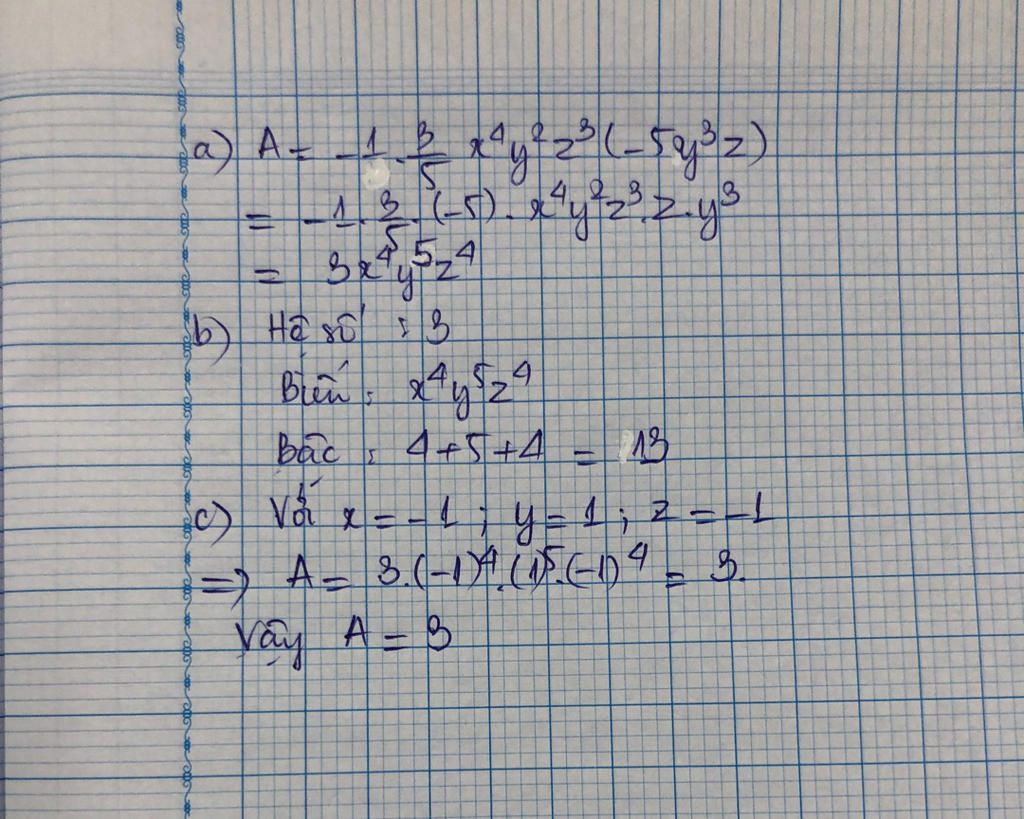 a) A = -1 . 3/5 x⁴y²z³(-5y³z)
= -1 . 3/5 . (-5) . x⁴y²z³.z.y³
= 3x⁴y⁵z⁴
b) Hệ số : 3
Biến : x⁴y⁵z⁴
Bậc : 4+5+4 = 13
c) Với x = -1 ; y = 1 ; z = -1
=> A = 3.(-1)⁴.(1)⁵.(-1)⁴ = 3.
Vậy A = 3